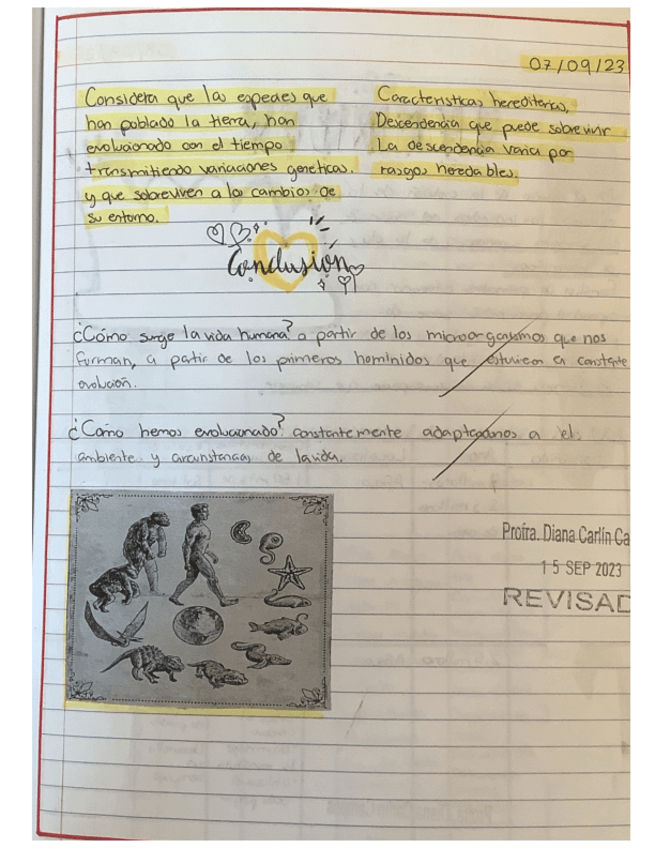 07/09/23
Considera que las especies que
han poblado la tierra, han
evolucionado con el tiempo
transmitiendo variaciones geneticas.
y que sobreviven a los cambios de
su entorno.
Caracteristicas hereditarias,
Descendencia que puede sobrevivir
La descendencia varia por
rasgos heredables.
Conclusion
¿Cómo surge la vida humana? a partir de los microorganismos que nos
forman, a partir de los primeros hominidos que estuvieron en constante
evolución.
¿Como hemos evolucionado? constantemente adaptandonos a el
ambiente y circunstancias de la vida.
Profra. Diana Carlín Ca
15 SEP 2023
REVISAD